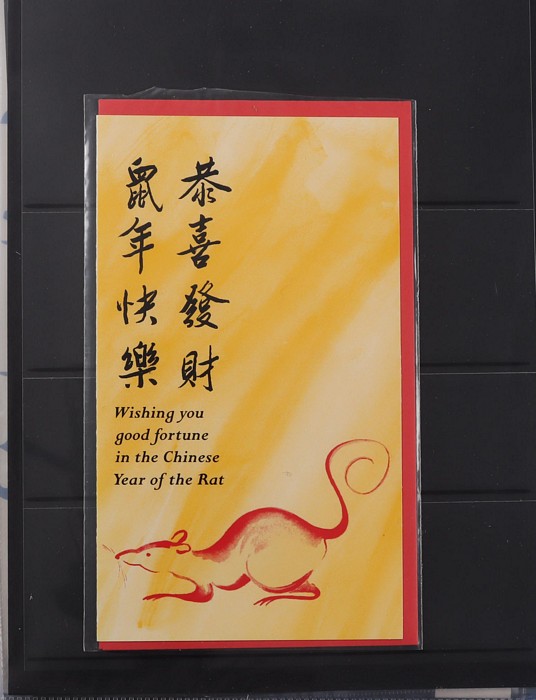 恭喜發財
鼠年快樂
Wishing you
good fortune
in the Chinese
Year of the Rat